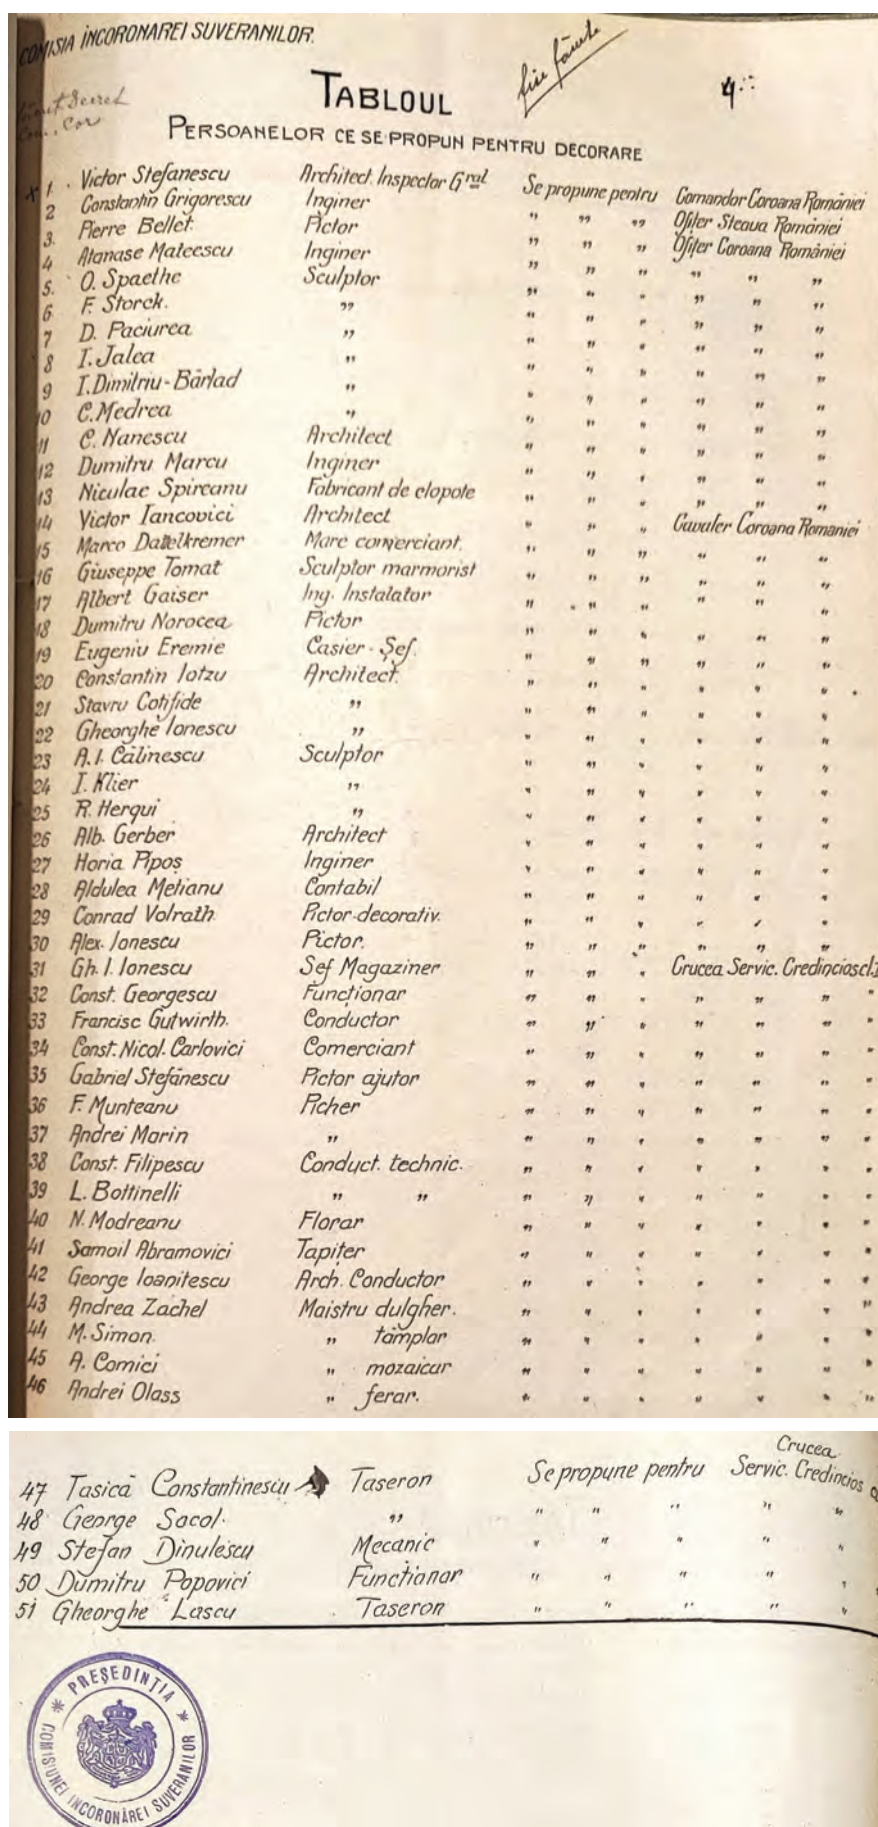 COMISIA ÎNCORONAREI SUVERANILOR.
TABLOUL
4
PERSOANELOR CE SE PROPUN PENTRU DECORARE
1. Victor Stefanescu Architect. Inspector Gral Se propune pentru Comandor Coroana României
2 Constantin Grigorescu Inginer " " " Ofiţer Steaua României
3. Pierre Bellet Pictor " " " Ofiţer Coroana României
4 Atanase Mateescu Inginer " " " " " "
5. O. Spaethe Sculptor " " " " " "
6 F. Storck. " " " " " " "
7 D. Paciurea " " " " " " "
8 I. Jalea " " " " " " "
9 I. Dimitriu-Bârlad " " " " " " "
10 C. Medrea " " " " " " "
11 C. Nanescu Architect " " " " " "
12 Dumitru Marcu Inginer " " " " " "
13 Niculae Spireanu Fabricant de clopote " " " " " "
14 Victor Iancovici Architect " " " Cavaler Coroana Romaniei
15 Marco Dattelkremer Mare comerciant. " " " " " "
16 Giuseppe Tomat Sculptor marmorist " " " " " "
17 Albert Gaiser Ing. Instalator " " " " " "
18 Dumitru Norocea Pictor " " " " " "
19 Eugeniu Eremie Casier-Şef. " " " " " "
20 Constantin Iotzu Architect. " " " " " "
21 Stavru Coţifide " " " " " " "
22 Gheorghe Ionescu " " " " " " "
23 A. I. Călinescu Sculptor " " " " " "
24 I. Klier " " " " " " "
25 R. Herqui " " " " " " "
26 Alb. Gerber Architect " " " " " "
27 Horia Pipoş Inginer " " " " " "
28 Aldulea Metianu Contabil " " " " " "
29 Conrad Volrath Pictor-decorativ. " " " " " "
30 Alex. Ionescu Pictor. " " " " " "
31 Gh. I. Ionescu Şef Magaziner " " " Crucea Servic. Credincios cl. I
32 Const. Georgescu Funcţionar " " " " " " "
33 Francisc Gutwirth. Conductor " " " " " " "
34 Const. Nicol. Carlovici Comerciant " " " " " " "
35 Gabriel Stefănescu Pictor ajutor " " " " " " "
36 F. Munteanu Picher " " " " " " "
37 Andrei Marin " " " " " " " "
38 Const. Filipescu Conduct. technic. " " " " " " "
39 L. Bottinelli " " " " " " " " "
40 N. Modreanu Florar " " " " " " "
41 Samoil Abramovici Tapiţer " " " " " " "
42 George Ioaniţescu Arch. Conductor " " " " " " "
43 Andrea Zachel Maistru dulgher. " " " " " " "
44 M. Simon. " tâmplar " " " " " " "
45 A. Comici " mozaicar " " " " " " "
46 Andrei Olass " ferar. " " " " " " "
47 Tasică Constantinescu Taseron Se propune pentru Crucea Servic. Credincios
48 George Socol. " " " " " "
49 Stefan Dinulescu Mecanic " " " " "
50 Dumitru Popovici Funcţionar " " " " "
51 Gheorghe Lascu Taseron " " " " "
* PREŞEDINŢIA *
COMISIUNEI INCORONĂREI SUVERANILOR